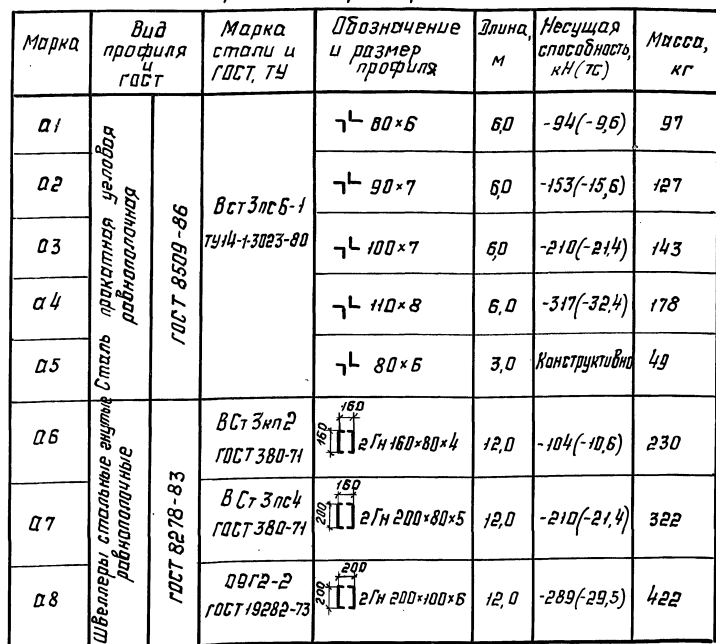 Марка
Вид профиля и ГОСТ
Марка стали и ГОСТ, ТУ
Обозначение и размер профиля
Длина, м
Несущая способность, кН(тс)
Масса, кг
Сталь прокатная угловая равнополочная
ГОСТ 8509-86
ВСт3пс6-1
ТУ14-1-3023-80
а1 80×6 6,0 -94(-9,6) 97
а2 90×7 6,0 -153(-15,6) 127
а3 100×7 6,0 -210(-21,4) 143
а4 110×8 6,0 -317(-32,4) 178
а5 80×6 3,0 Конструктивно 49
Швеллеры стальные гнутые равнополочные
ГОСТ 8278-83
а6 ВСт3кп2 ГОСТ 380-71 160 160 2Гн160×80×4 12,0 -104(-10,6) 230
а7 ВСт3пс4 ГОСТ 380-71 160 200 2Гн 200×80×5 12,0 -210(-21,4) 322
а8 09Г2-2 ГОСТ 19282-73 200 200 2Гн 200×100×6 12,0 -289(-29,5) 422